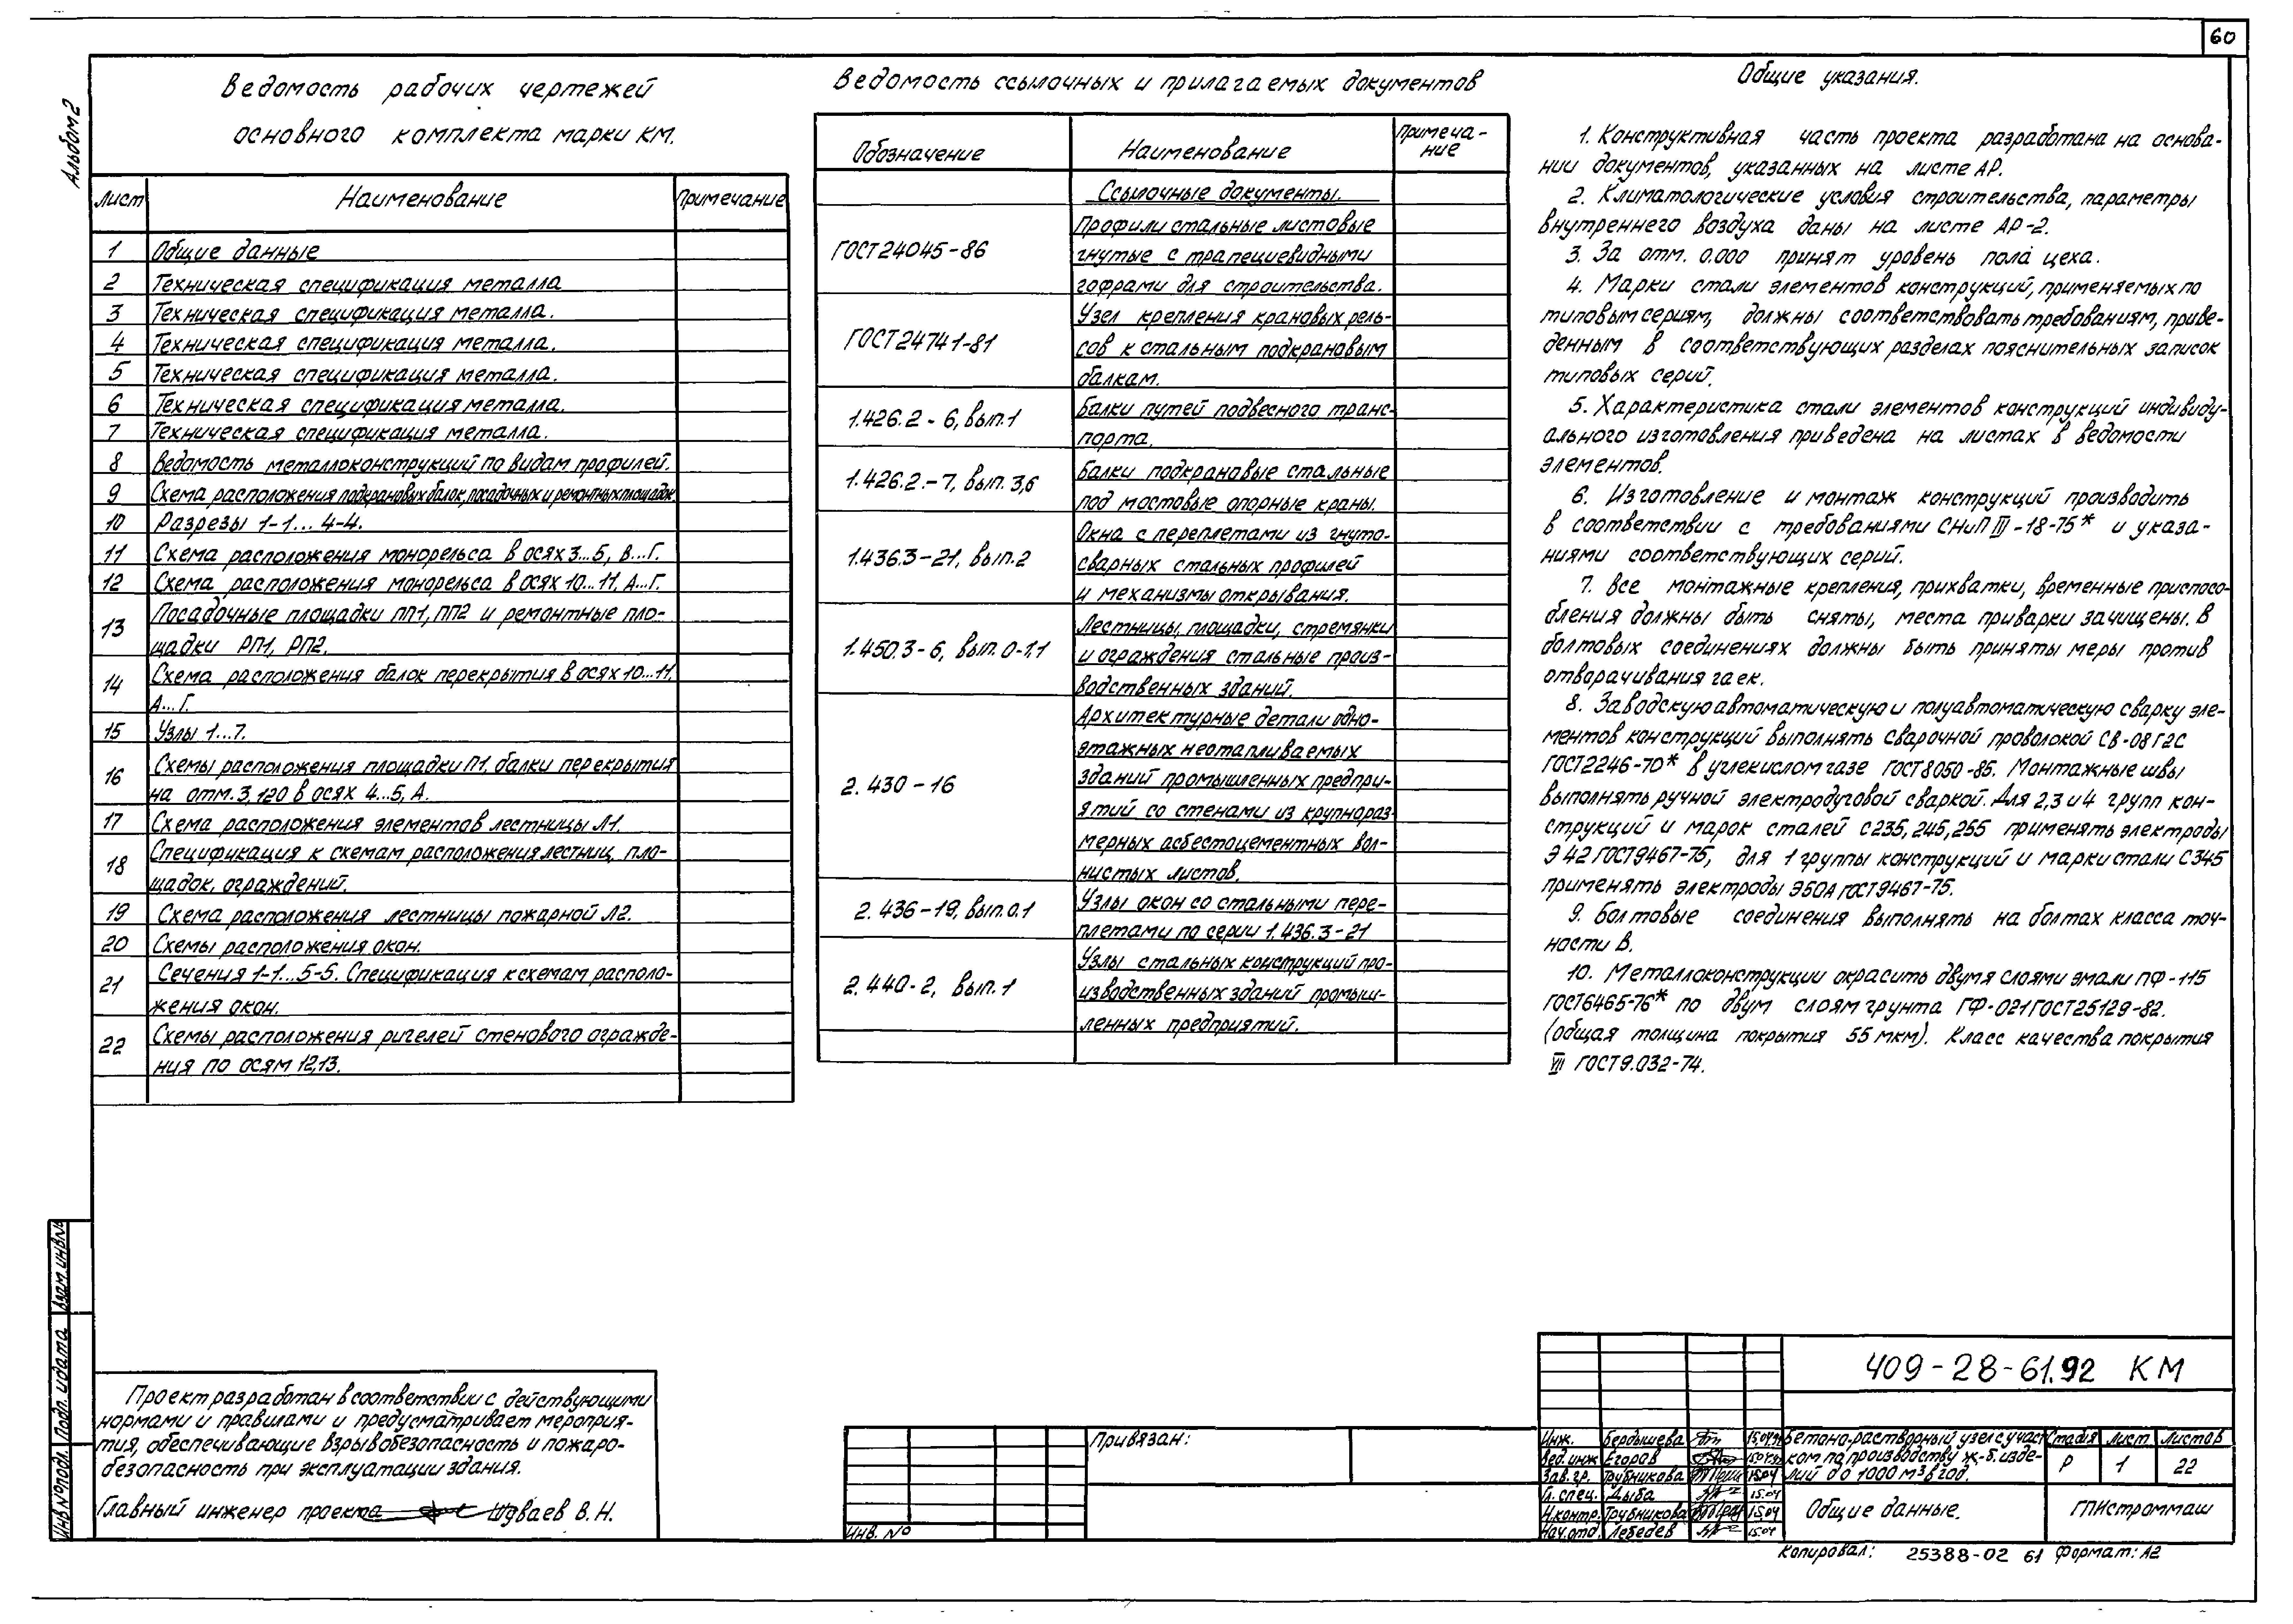 60
Альбом 2
Ведомость рабочих чертежей
основного комплекта марки КМ.
Лист Наименование Примечание
1 Общие данные
2 Техническая спецификация металла
3 Техническая спецификация металла.
4 Техническая спецификация металла.
5 Техническая спецификация металла.
6 Техническая спецификация металла.
7 Техническая спецификация металла.
8 Ведомость металлоконструкций по видам профилей.
9 Схема расположения подкрановых балок, посадочных и ремонтных площадок
10 Разрезы 1-1... 4-4.
11 Схема расположения монорельса в осях 3...5, В...Г.
12 Схема расположения монорельса в осях 10...11, А...Г.
13 Посадочные площадки ПП1, ПП2 и ремонтные пло-
щадки РП1, РП2.
14 Схема расположения балок перекрытия в осях 10...11,
А...Г.
15 Узлы 1...7.
16 Схемы расположения площадки П1, балки перекрытия
на отм. 3,120 в осях 4...5, А.
17 Схема расположения элементов лестницы Л1.
18 Спецификация к схемам расположения лестниц, пло-
щадок, ограждений.
19 Схема расположения лестницы пожарной Л2.
20 Схемы расположения окон.
21 Сечения 1-1...5-5. Спецификация к схемам располо-
жения окон.
22 Схемы расположения ригелей стенового огражде-
ния по осям 12,13.
Ведомость ссылочных и прилагаемых документов
Обозначение Наименование Примеча-
ние
Ссылочные документы.
ГОСТ 24045-86 Профили стальные листовые
гнутые с трапециевидными
гофрами для строительства.
ГОСТ 24741-81 Узел крепления крановых рель-
сов к стальным подкрановым
балкам.
1.426.2-6, вып.1 Балки путей подвесного транс-
порта.
1.426.2.-7, вып. 3,6 Балки подкрановые стальные
под мостовые опорные краны.
1.436.3-21, вып.2 Окна с переплетами из гнуто-
сварных стальных профилей
и механизмы открывания.
1.450.3-6, вып. 0-1,1 Лестницы, площадки, стремянки
и ограждения стальные произ-
водственных зданий.
2.430-16 Архитектурные детали одно-
этажных неотапливаемых
зданий промышленных предпри-
ятий со стенами из крупнораз-
мерных асбестоцементных вол-
нистых листов.
2.436-19, вып.0.1 Узлы окон со стальными пере-
плетами по серии 1.436.3-21
2.440-2, вып.1 Узлы стальных конструкций про-
изводственных зданий промыш-
ленных предприятий.
Общие указания.
1. Конструктивная часть проекта разработана на основа-
нии документов, указанных на листе АР.
2. Климатологические условия строительства, параметры
внутреннего воздуха даны на листе АР-2.
3. За отм. 0.000 принят уровень пола цеха.
4. Марки стали элементов конструкций, применяемых по
типовым сериям, должны соответствовать требованиям, приве-
денным в соответствующих разделах пояснительных записок
типовых серий.
5. Характеристика стали элементов конструкций индивиду-
ального изготовления приведена на листах в ведомости
элементов.
6. Изготовление и монтаж конструкций производить
в соответствии с требованиями СНиП III-18-75* и указа-
ниями соответствующих серий.
7. Все монтажные крепления, прихватки, временные приспосо-
бления должны быть сняты, места приварки зачищены. В
болтовых соединениях должны быть приняты меры против
отворачивания гаек.
8. Заводскую автоматическую и полуавтоматическую сварку эле-
ментов конструкций выполнять сварочной проволокой СВ-08Г2С
ГОСТ 2246-70* в углекислом газе ГОСТ 8050-85. Монтажные швы
выполнять ручной электродуговой сваркой. Для 2,3 и 4 групп кон-
струкций и марок сталей С235, 245, 255 применять электроды
Э42 ГОСТ 9467-75, для 1 группы конструкций и марки стали С345
применять электроды Э50А ГОСТ 9467-75.
9. Болтовые соединения выполнять на болтах класса точ-
ности В.
10. Металлоконструкции окрасить двумя слоями эмали ПФ-115
ГОСТ 6465-76* по двум слоям грунта ГФ-021 ГОСТ 25129-82.
(общая толщина покрытия 55 мкм). Класс качества покрытия
VII ГОСТ 9.032-74.
Инв.№подл. Подп. и дата Взам.инв№
Проект разработан в соответствии с действующими
нормами и правилами и предусматривает мероприя-
тия, обеспечивающие взрывобезопасность и пожаро-
безопасность при эксплуатации здания.
Главный инженер проекта Шуваев В.Н.
Привязан:
Инв. №
409-28-61.92 КМ
Инж. Бердышева 15.04.92
Вед.инж Егоров 15.04.92
Зав.гр. Трубникова 15.04
Гл.спец. Дыба 15.04
Н.контр. Трубникова 15.04
Нач.отд. Лебедев 15.04
Бетоно-растворный узел с участ
ком по производству ж.-б. изде-
лий до 1000 м³ в год.
Стадия Лист Листов
Р 1 22
Общие данные.
ГПИстроммаш
Копировал: 25388-02 61 Формат: А2